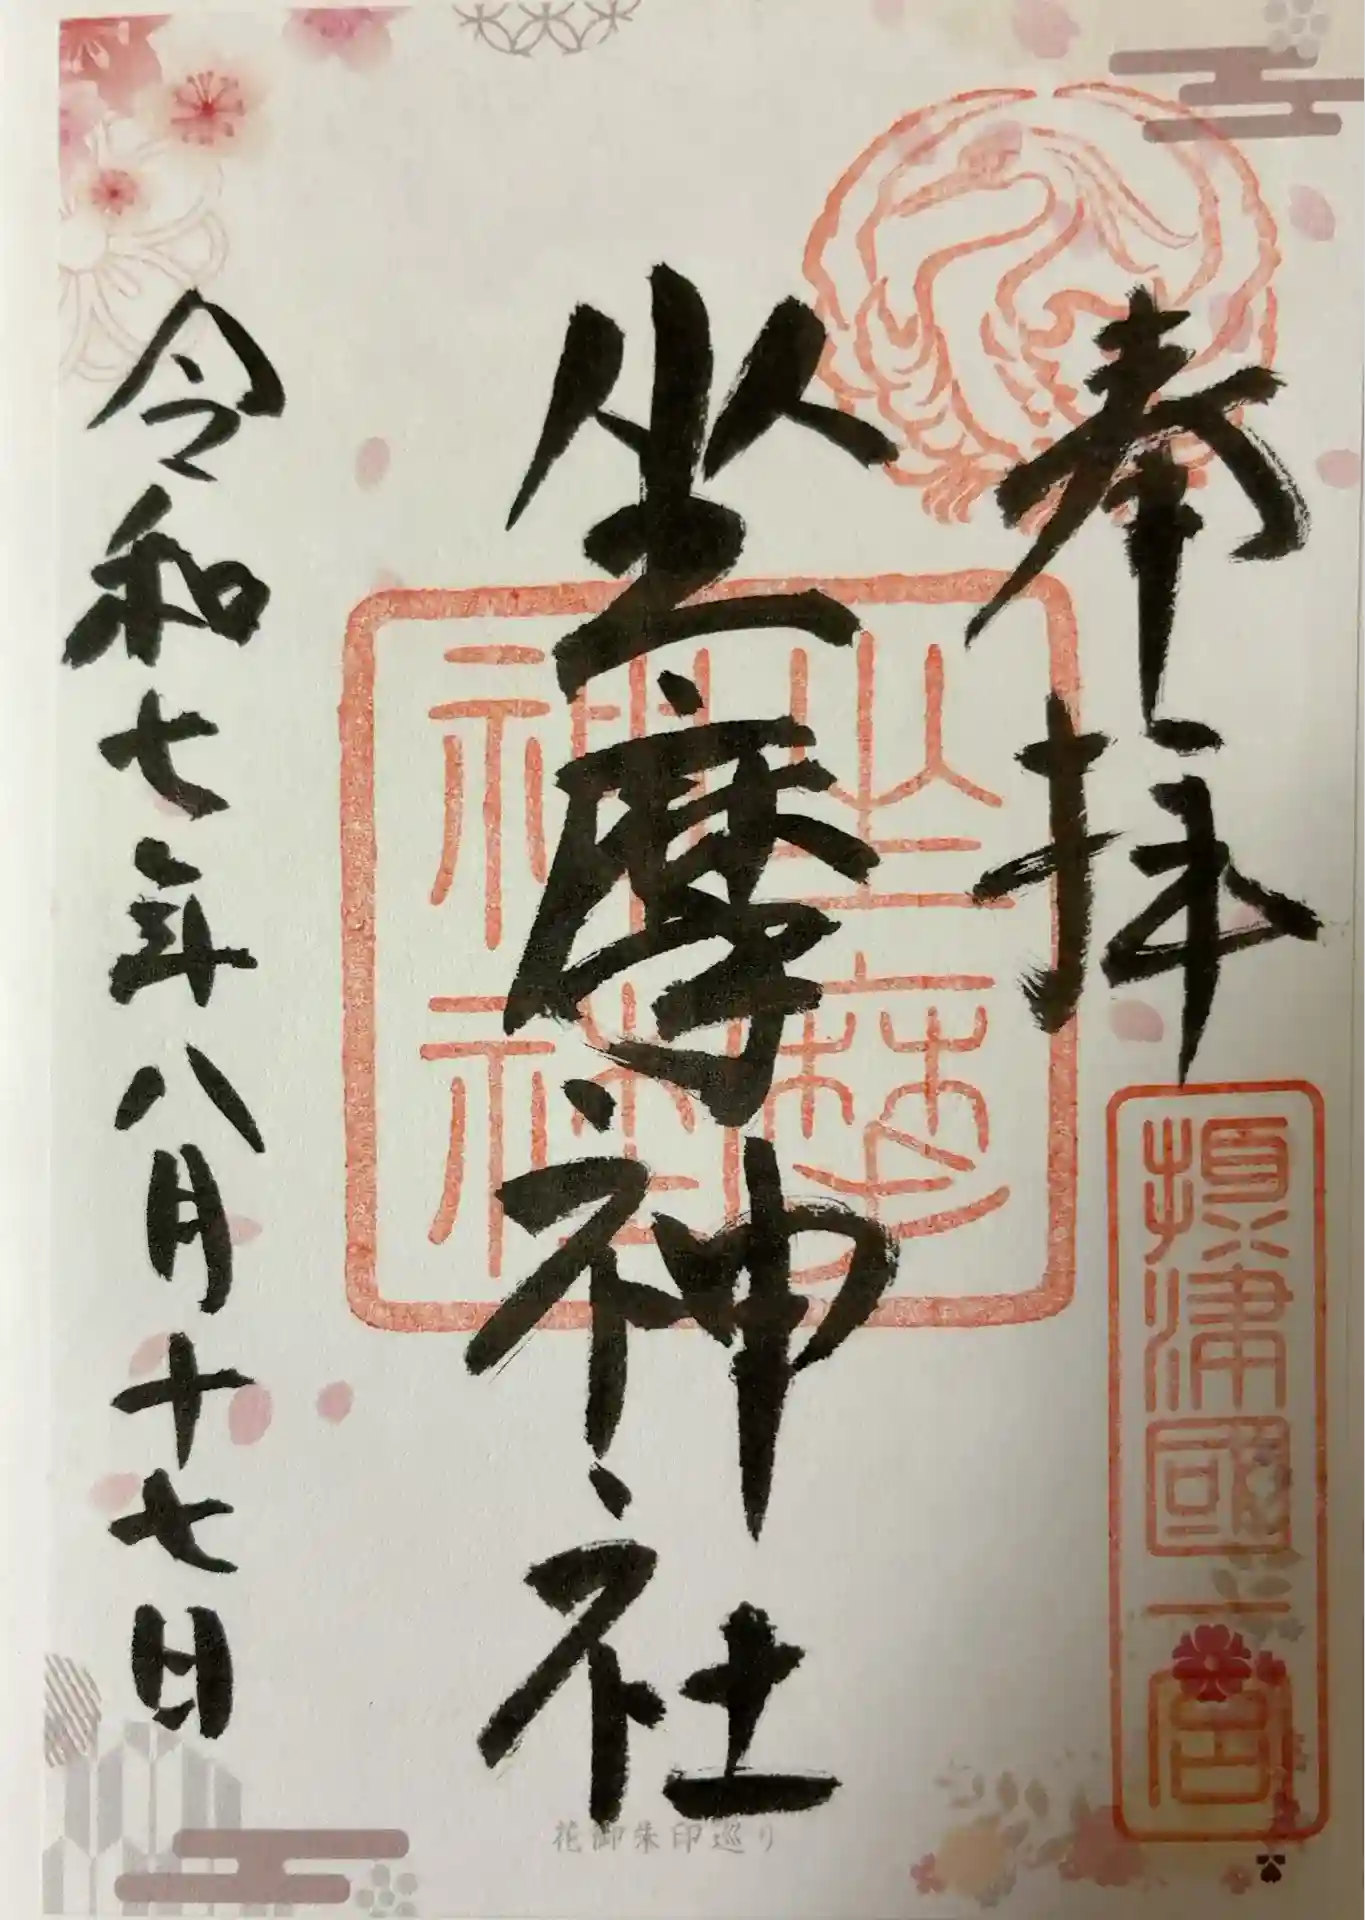 奉拝
攝津國一宮
坐摩神社
坐摩神社
令和七年八月十七日
花御朱印巡り